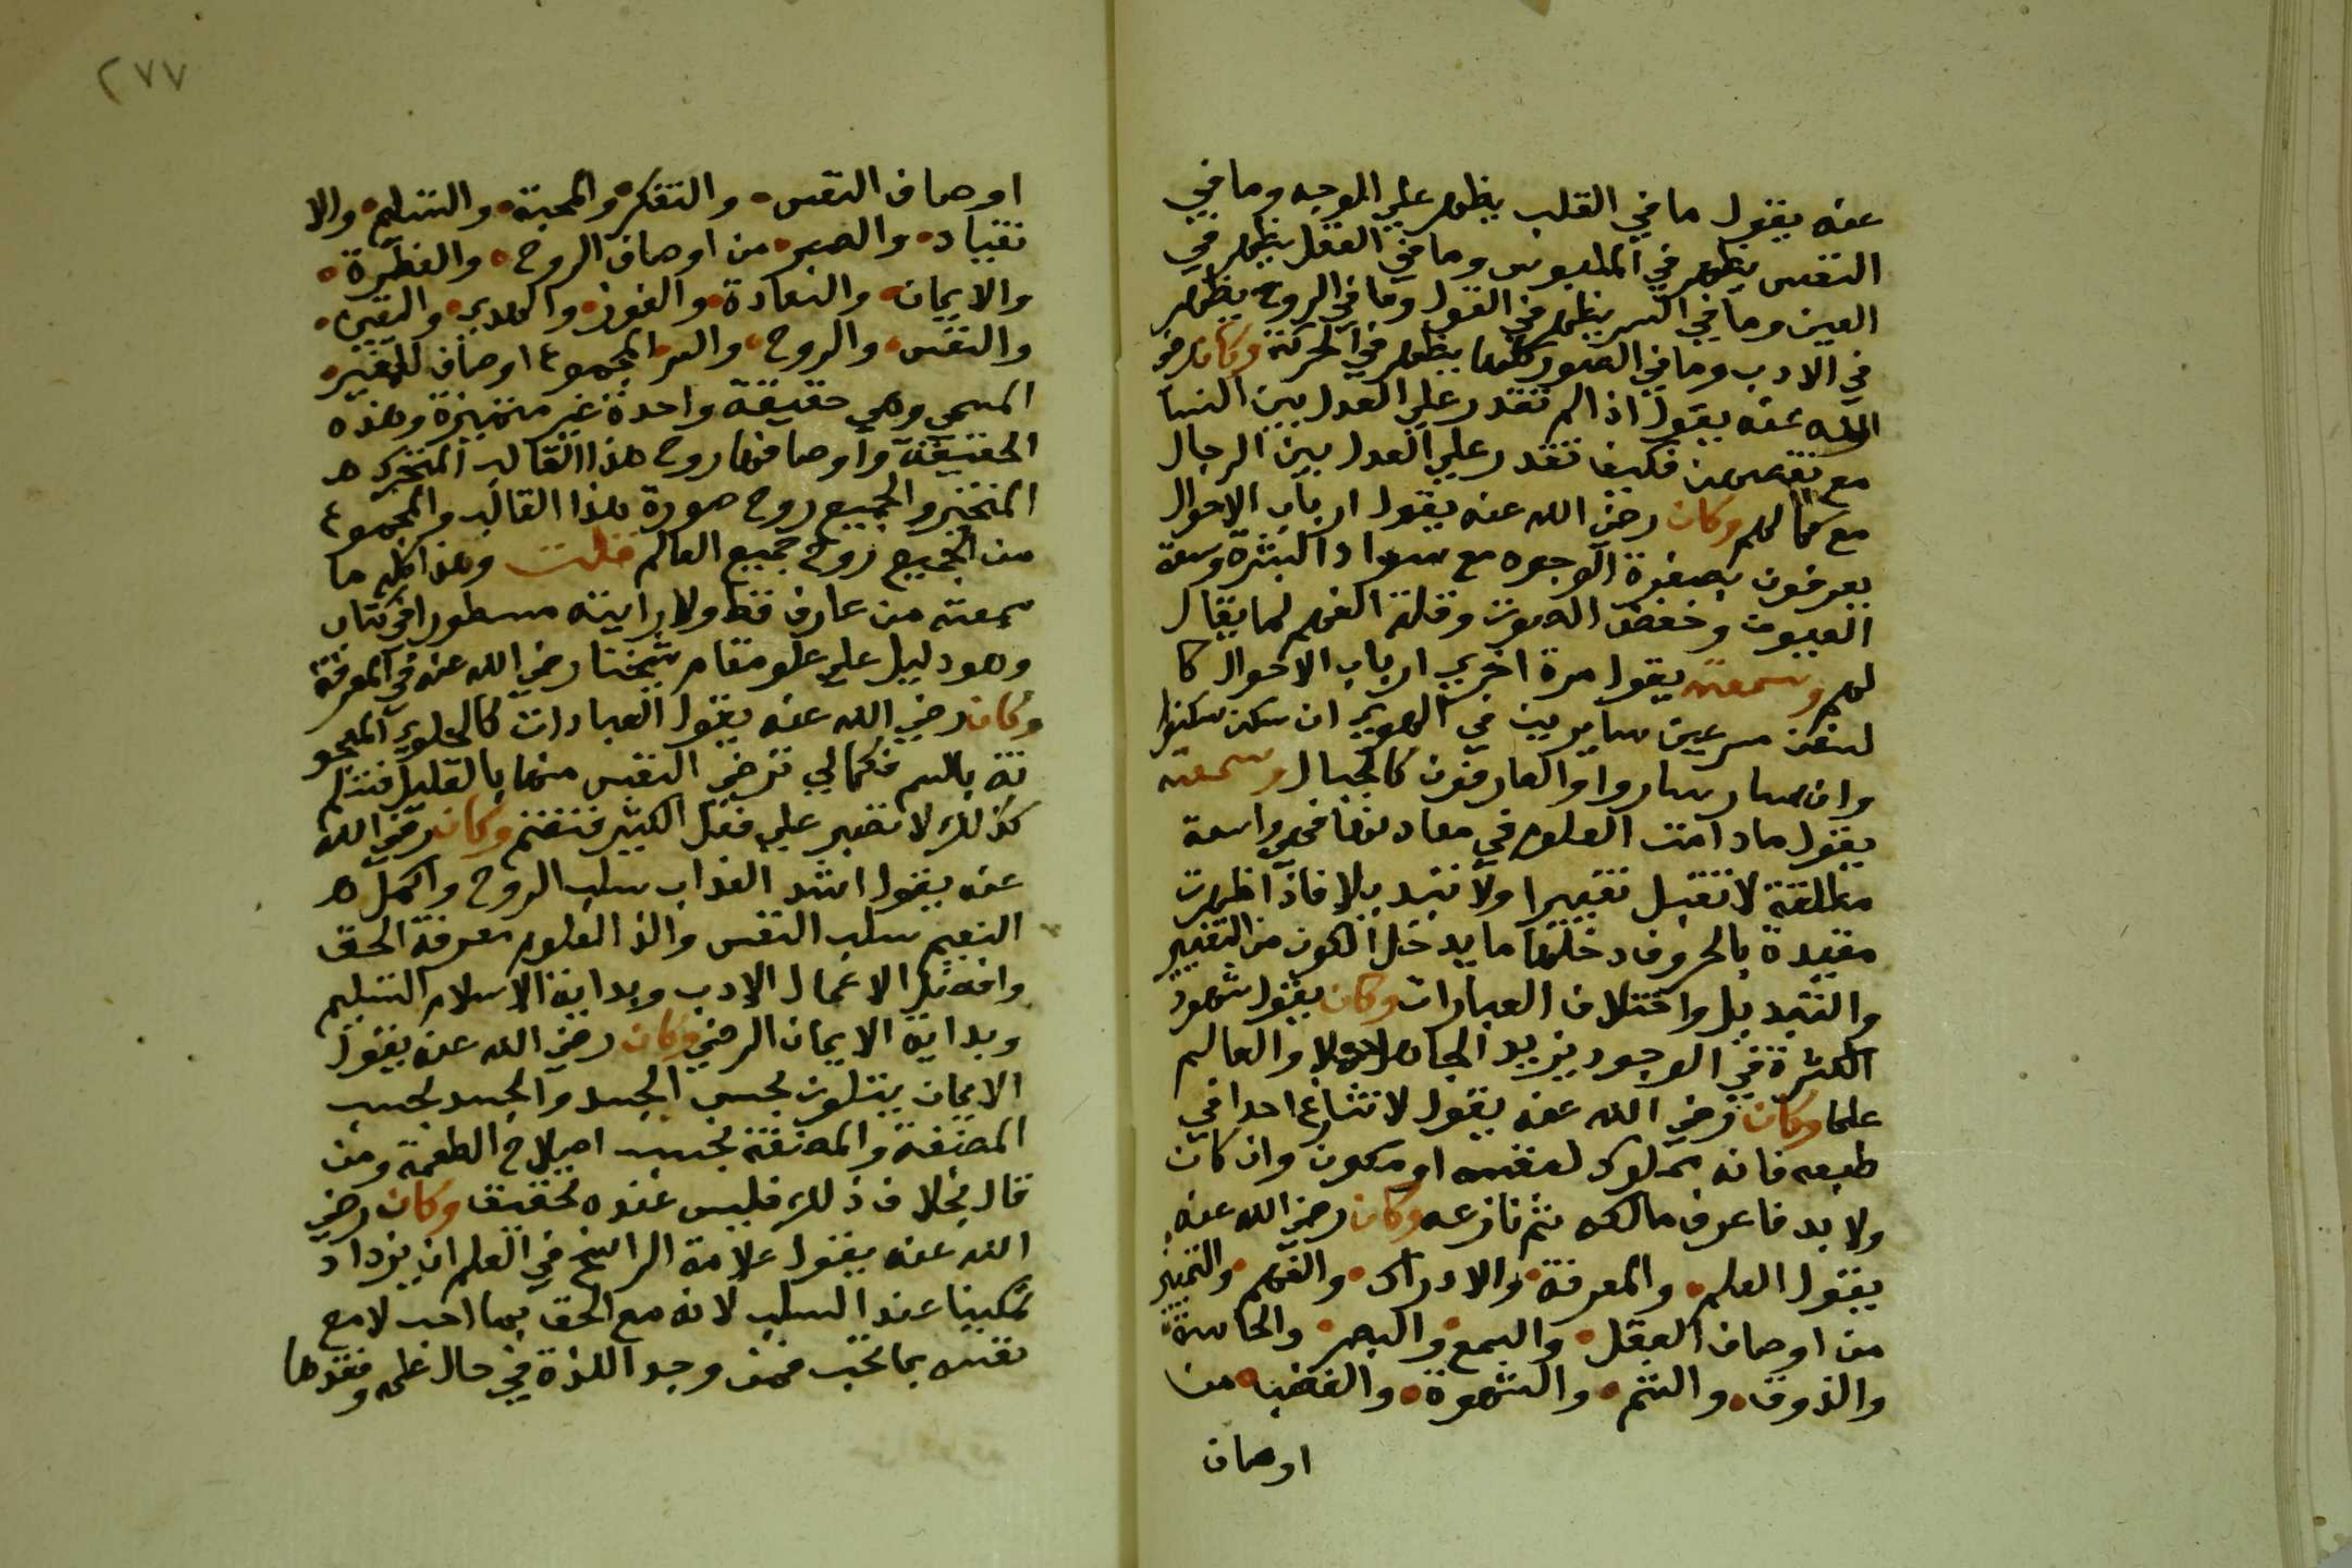 عنه يقول ما في القلب يظهر علي الوجه وما في
النفس يظهر في الملبوس وما في العقل يظهر في
العين وما في السر يظهر في القول وما في الروح يظهر
في الادب وما في الصور كلها يظهر في الحركة وكان رضي
الله عنه يقول اذا لم تقدر علي العدل بين النسا
مع نقصهن فكيف تقدر علي العدل بين الرجال
مع كمالهم وكان رضي الله عنه يقول ارباب الاحوال
يعرفون بصفرة الوجوه مع سواد البشرة وسعة
العيون وخفض الصوت وقلة الفهم لما يقال
لهم وسمعته يقول مرة اخري ارباب الاحوال كا
لسفن مسرعين سايرين في الهوي ان سكن سكنوا
وان سار ساروا والعارفون كالجبال وسمعته
يقول مادامت العلوم في معادنها فهي واسعة
مطلقة لا تقبل تغييرا ولا تبديلا فاذا ظهرت
مقيدة بالحروف دخلها ما يدخل الكون من التغيير
والتبديل واختلاف العبارات وكان يقول شهود
الكثرة في الوجود يزيد الجاهل جهلا والعالم
علما وكان رضي الله عنه يقول لا تنازع احدا في
طبعه فانه مملوك لنفسه او مكون وان كان
ولا بد فاعرف مالكه ثم نازعه وكان رضي الله عنه
يقول العلم والمعرفة والادراك والفهم والتمييز
من اوصاف العقل والسمع والبصر والحاسة
والذوق والشم والشهوة والغضب من
اوصاف
٢٧٧
اوصاف النفس والتفكر والمحبة والتسليم والا
نقياد والصبر من اوصاف الروح والفطرة
والايمان والسعادة والفوز والهدي واليقين
والنفس والروح والسر المجموع اوصاف للغير
المسمي وهي حقيقة واحدة غير متميزة وهذه
الحقيقة واوصافها روح هذا القالب المتحرك
المتحيز والجميع روح صورة هذا القالب والمجموع
من الجميع روح جميع العالم قلت وهذا كله ما
سمعته من عارف قط ولا رايته مسطورا في كتاب
وهو دليل علي علو مقام شيخنا رضي الله عنه في المعرفة
وكان رضي الله عنه يقول العبادات كالحلوي المعجو
نة بالسم فكما لي ترضي النفس منها بالقليل فتسلم
كذلك لا تصبر علي فعل الكثير فتغنم وكان رضي الله
عنه يقول اشد العذاب سلب الروح واكمل
النعيم سلب النفس والذ العلوم معرفة الحق
وافضل الاعمال الادب وبداية الاسلام التسليم
وبداية الايمان الرضي وكان رضي الله عنه يقول
الايمان يتلون بحسب الجسد والجسد بحسب
المضغة والمضغة بحسب اصلاح الطعمة ومن
قال بخلاف ذلك فليس عنده تحقيق وكان رضي
الله عنه يقول علامة الراسخ في العلم ان يزداد
تمكينا عند السلب لانه مع الحق بما احب لا مع
نفسه بما تحب فمن وجد اللذة في حال علمه وفقدها